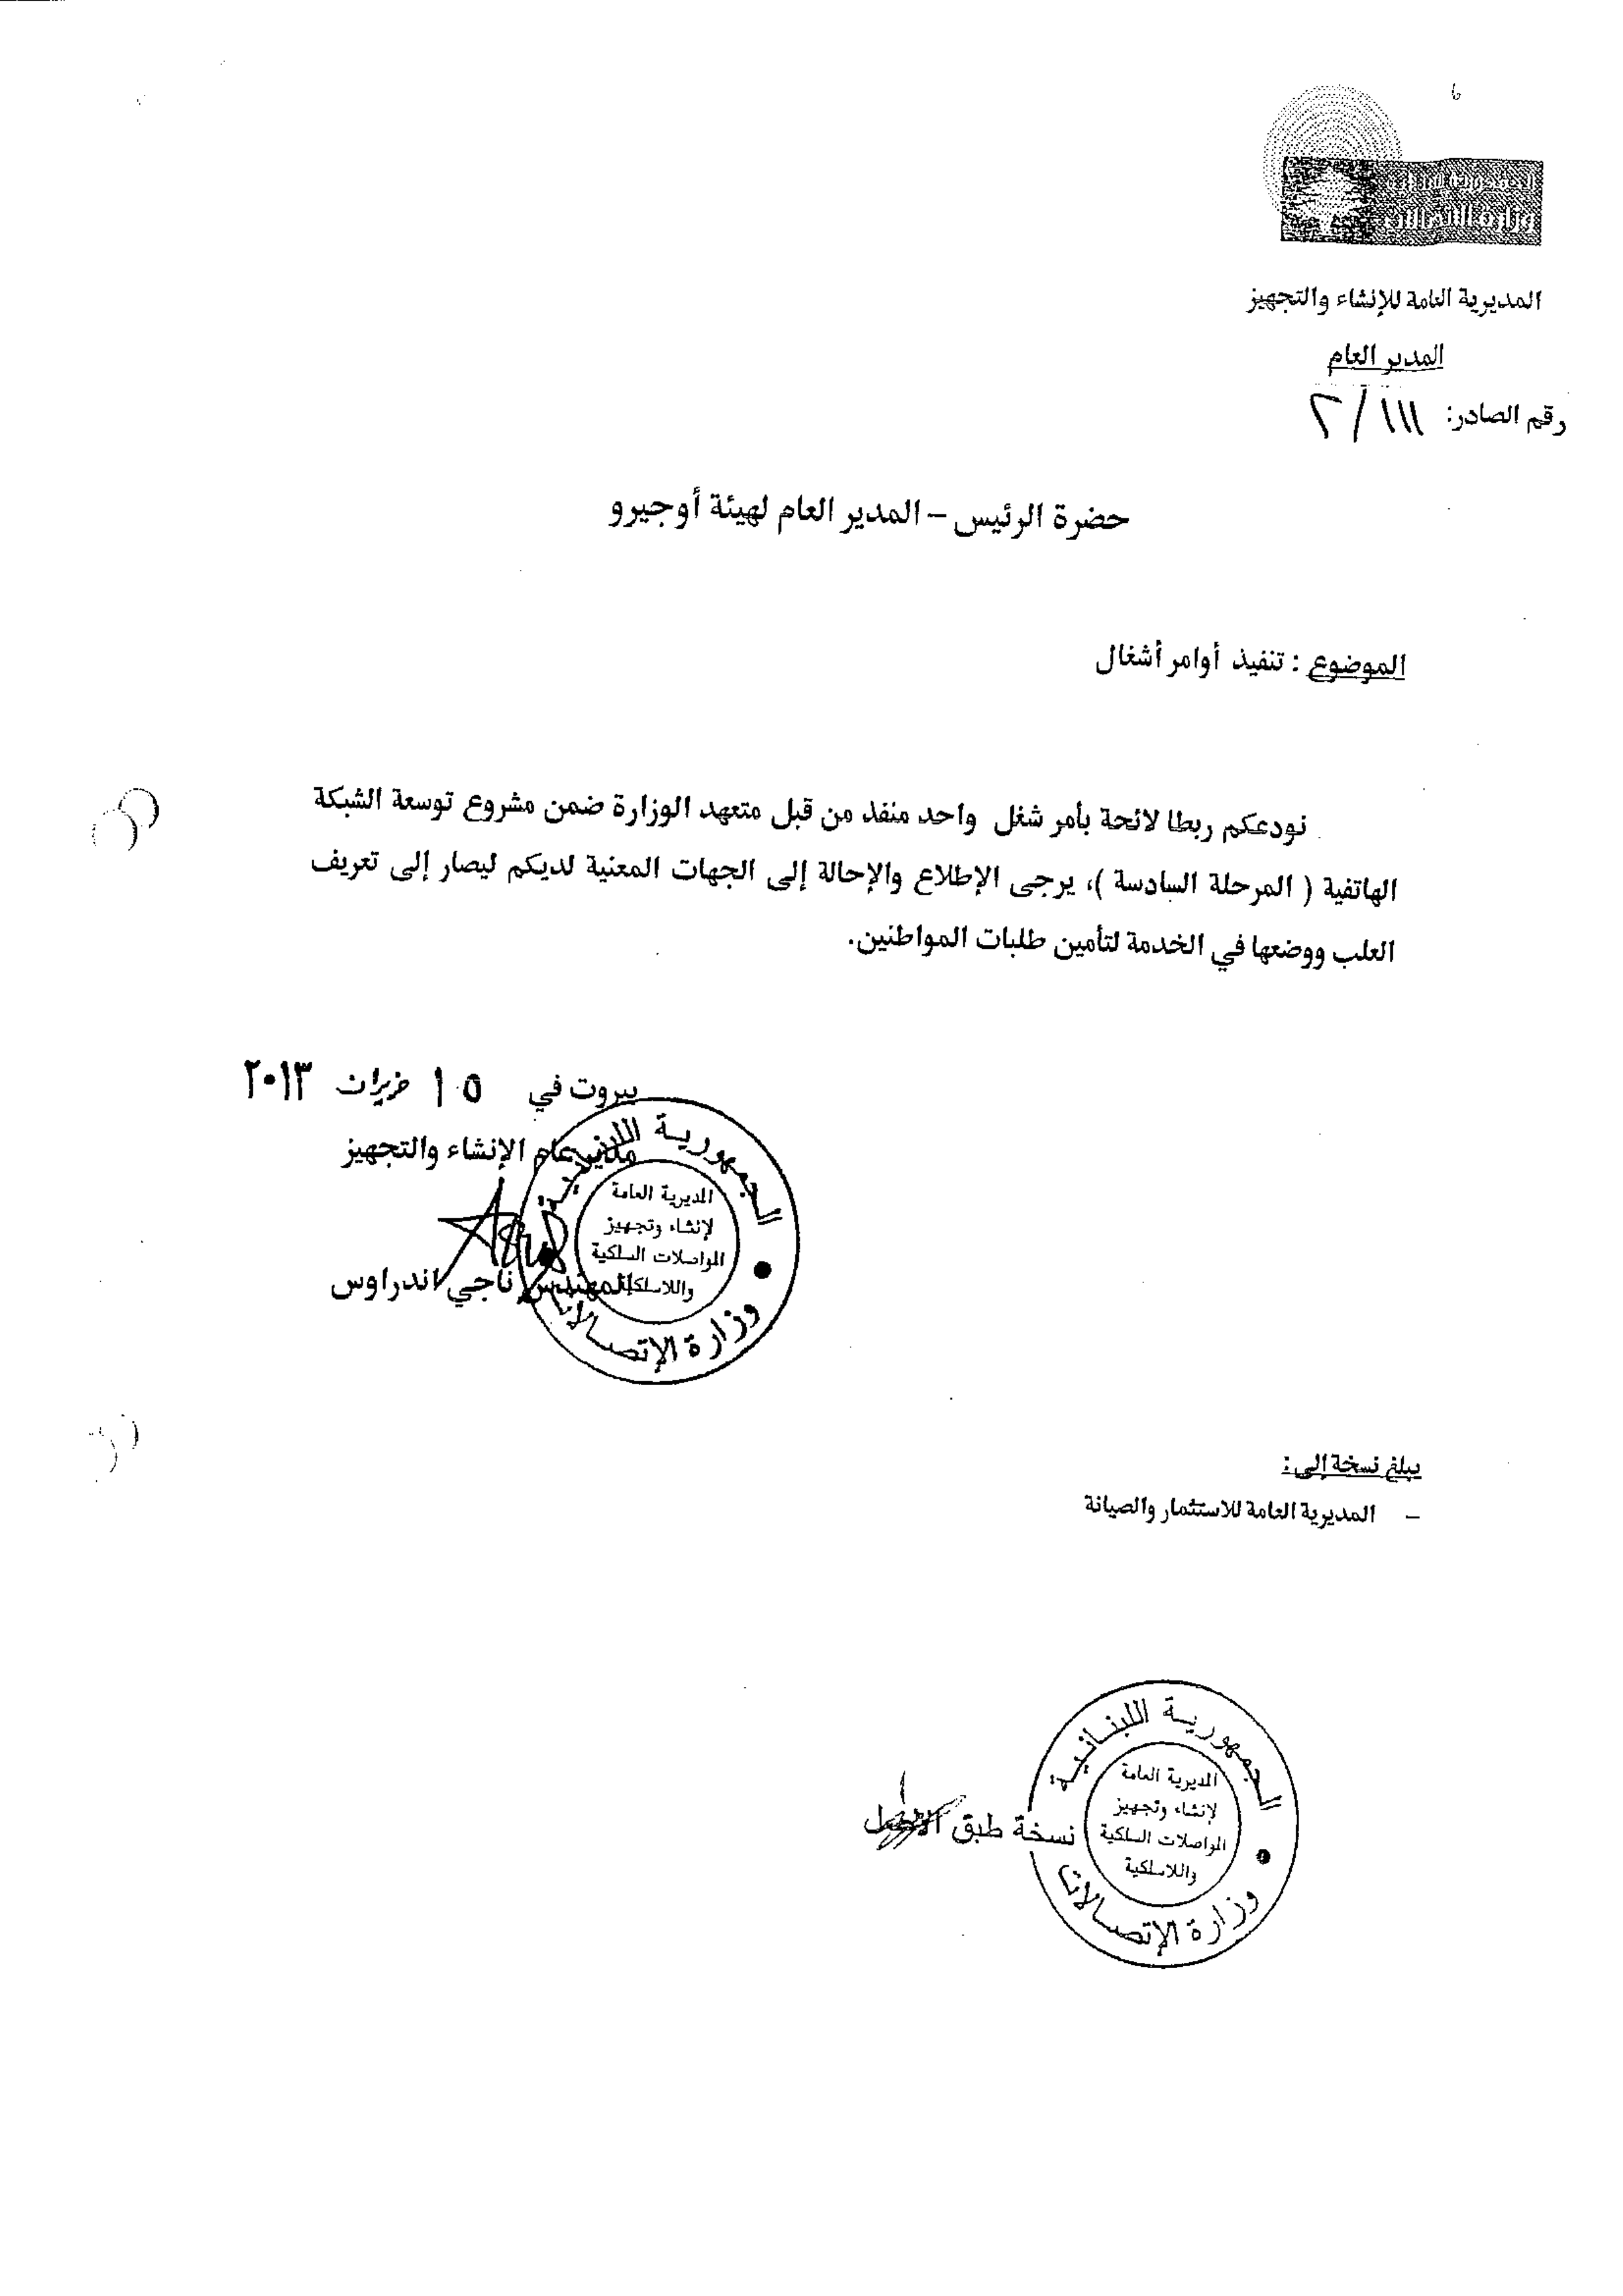 وزارة الاتصالات
المديرية العامة للإنشاء والتجهيز
المدير العام
رقم الصادر: ١١١ / ٢
حضرة الرئيس – المدير العام لهيئة أوجيرو
الموضوع : تنفيذ أوامر أشغال
نودعكم ربطا لائحة بأمر شغل واحد منفذ من قبل متعهد الوزارة ضمن مشروع توسعة الشبكة
الهاتفية ( المرحلة السادسة )، يرجى الإطلاع والإحالة إلى الجهات المعنية لديكم ليصار إلى تعريف
العلب ووضعها في الخدمة لتأمين طلبات المواطنين.
بيروت في ١٥ حزيران ٢٠١٣
مدير عام الإنشاء والتجهيز
المهندس ناجي اندراوس
الجمهورية اللبنانية
المديرية العامة
لإنشاء وتجهيز
المواصلات السلكية
واللاسلكية
وزارة الإتصالات
يبلغ نسخة إلى :
– المديرية العامة للاستثمار والصيانة
نسخة طبق الاصل
الجمهورية اللبنانية
المديرية العامة
لإنشاء وتجهيز
المواصلات السلكية
واللاسلكية
وزارة الإتصالات